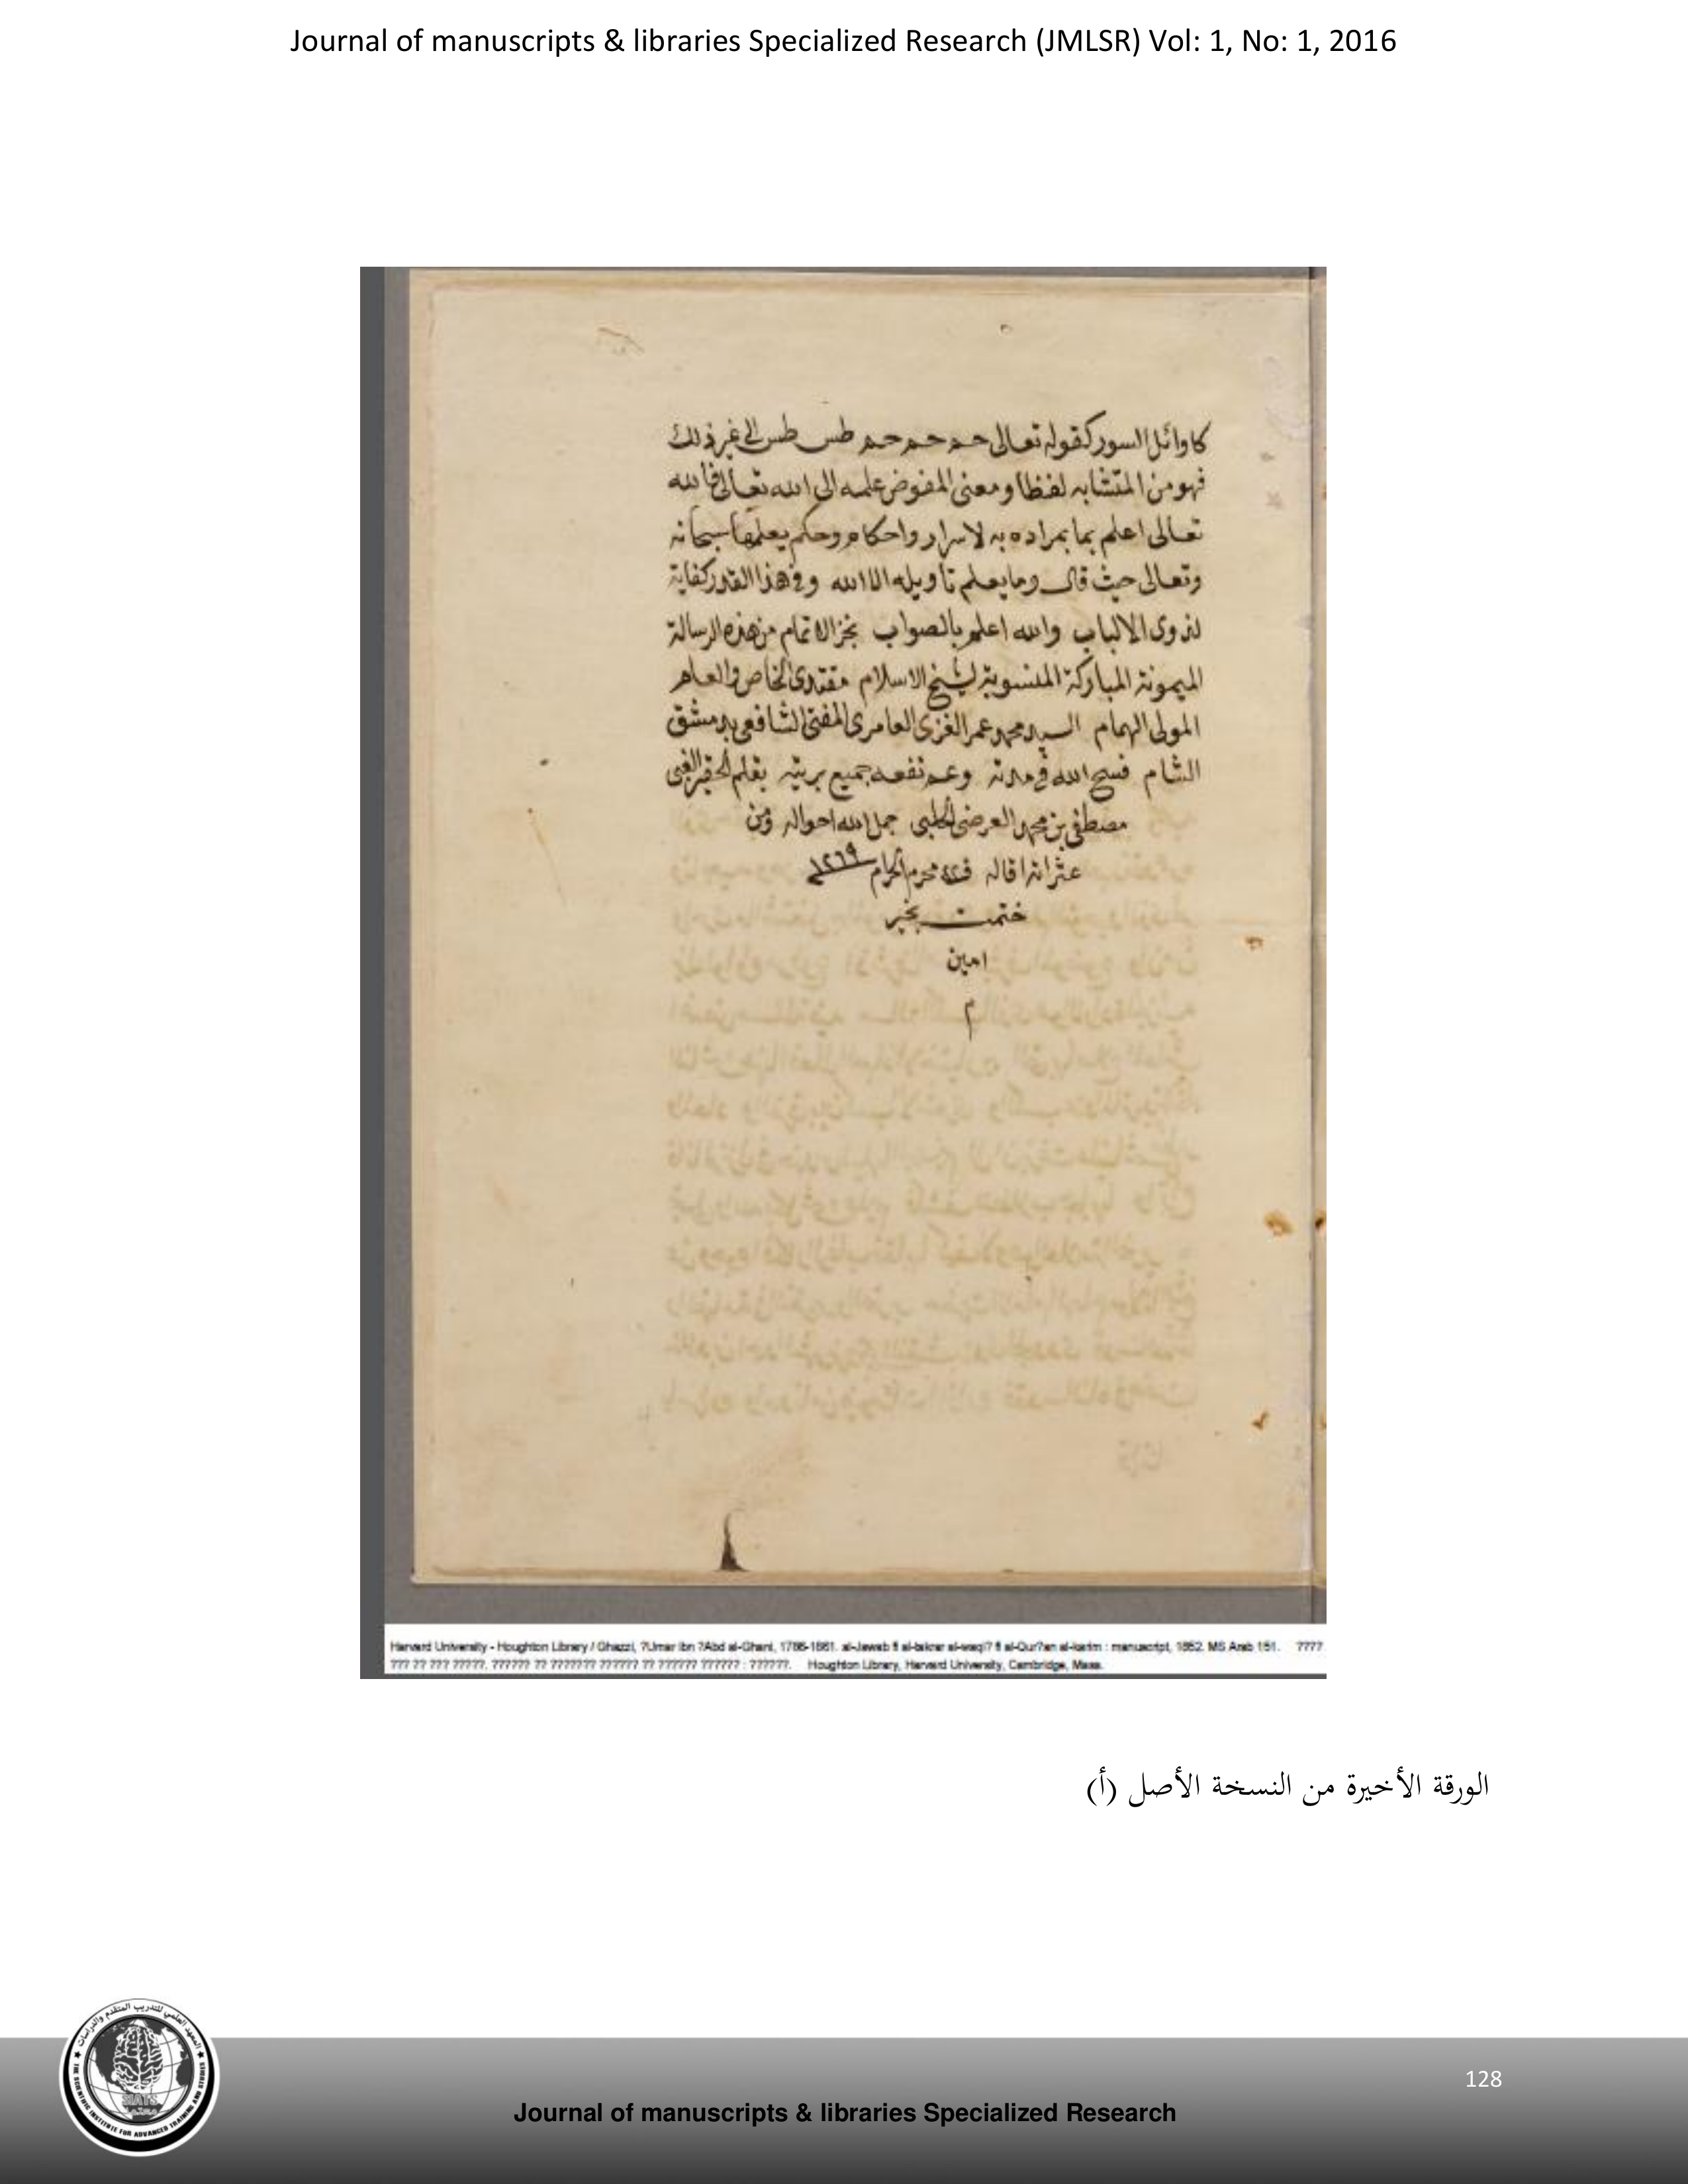 Journal of manuscripts & libraries Specialized Research (JMLSR) Vol: 1, No: 1, 2016
كاوائل السور كقوله تعالى حم حم حم طس طس الى غير ذلك
فهو من المتشابه لفظا ومعنى المفوض علمه الى الله تعالى فالله
تعالى اعلم بما بمراده به لاسرار واحكام وحكم يعلمها سبحانه
وتعالى حيث قال وما يعلم تاويله الا الله وفي هذا القدر كفاية
لذوى الالباب والله اعلم بالصواب نجز الاتمام من هذه الرسالة
الميمونة المباركة المنسوبة لشيخ الاسلام مقتدى الخاص والعام
المولى الهمام السيد محمد عمر الغزى العامرى المفتى الشافعي بدمشق
الشام فسح الله في مدته وعم نفعه جميع بريته بقلم الحقير الغبى
مصطفى بن محمد العرضى الحلبي جمل الله احواله ومن
عثراته اقاله في محرم الحرام ١٢٦٩
ختمت بخير
امين
م
Harvard University - Houghton Library / Ghazzi, ?Umar ibn ?Abd al-Ghani, 1786-1861. al-Jawab fi al-takrar al-waqi? fi al-Qur?an al-karim : manuscript, 1852. MS Arab 151. ????
??? ?? ??? ?????. ?????? ?? ??????? ?????? ?? ?????? ?????? : ??????. Houghton Library, Harvard University, Cambridge, Mass.
الورقة الأخيرة من النسخة الأصل (أ)
128
المعهد العلمي للتدريب المتقدم والدراسات
SIATS
THE SCIENTIFIC INSTITUTE FOR ADVANCED TRAINING AND STUDIES
Journal of manuscripts & libraries Specialized Research